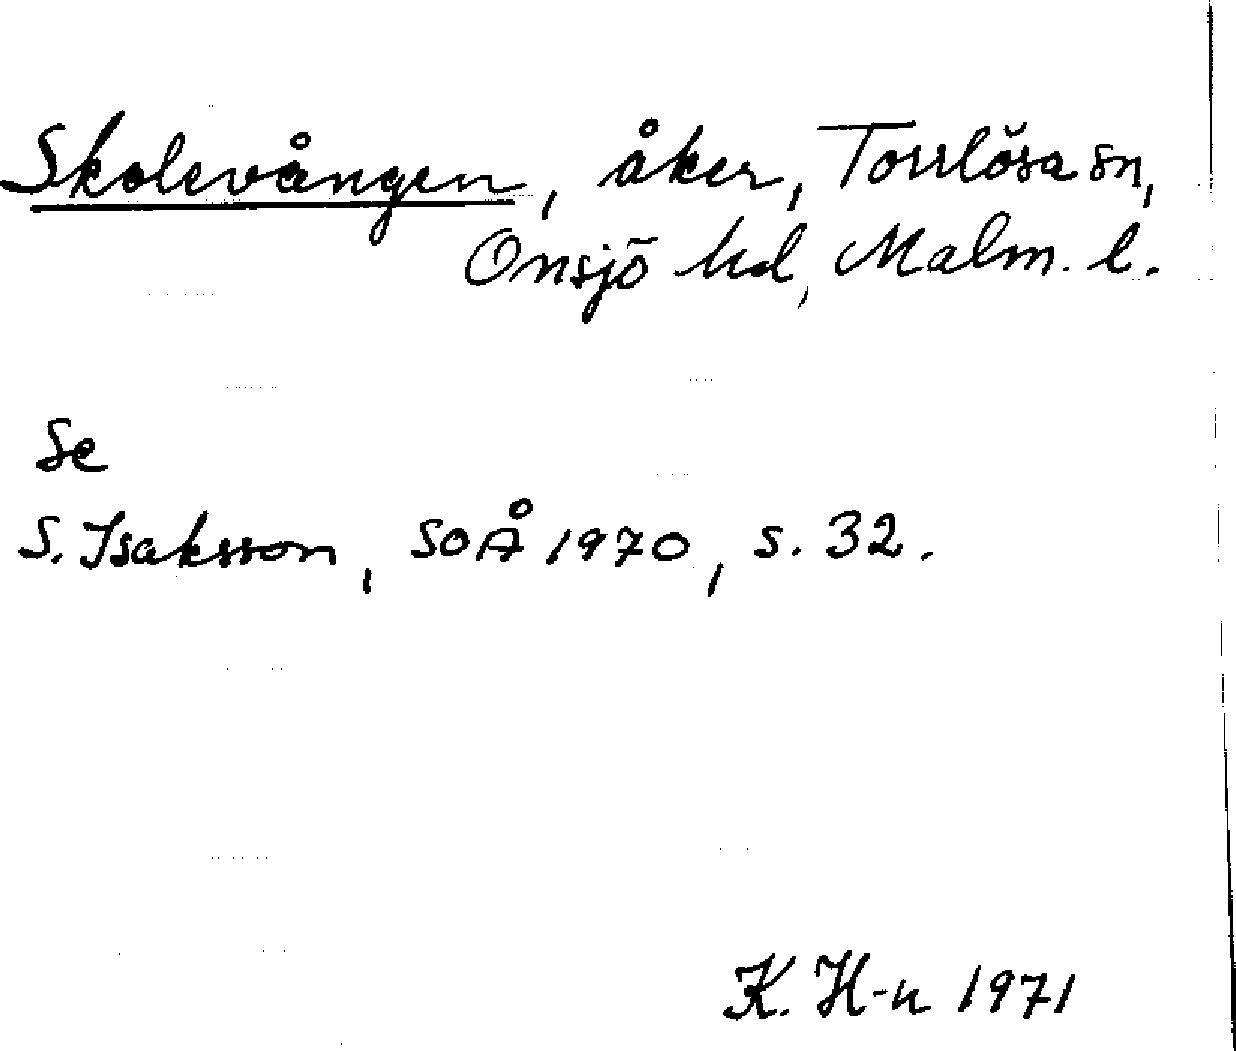 Skolevången, åker, Torrlösa sn,
Onsjö hd, Malm. l.
Se
S. Isaksson, SOÅ 1970, s. 32.
K. H-n 1971